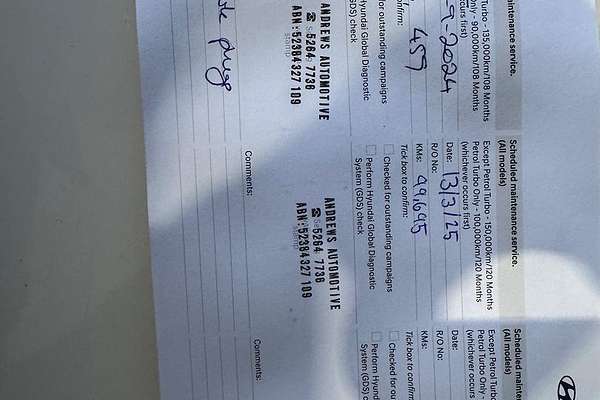 maintenance service.
Turbo - 135,000km/108 Months
Only - 90,000km/108 Months
occurs first)
-9-2024
459
confirm:
for outstanding campaigns
Hyundai Global Diagnostic
(GDS) check
ANDREWS AUTOMOTIVE
☎ 5264 7736
ABN:52384327 109
plugs
Scheduled maintenance service.
(All models)
Except Petrol Turbo - 150,000km/120 Months
Petrol Turbo Only - 100,000km/120 Months
(whichever occurs first)
Date: 13/3/25
R/O No:
KMs: 49,645
Tick box to confirm:
Checked for outstanding campaigns
Perform Hyundai Global Diagnostic
System (GDS) check
ANDREWS AUTOMOTIVE
☎ 5264 7736
ABN:52384327 109
Comments:
Scheduled mainten
(All models)
Except Petrol Turbo
Petrol Turbo Only -
(whichever occurs
Date:
R/O No:
KMs:
Tick box to confirm
Checked for ou
Perform Hyund
System (GDS) c
Comments: